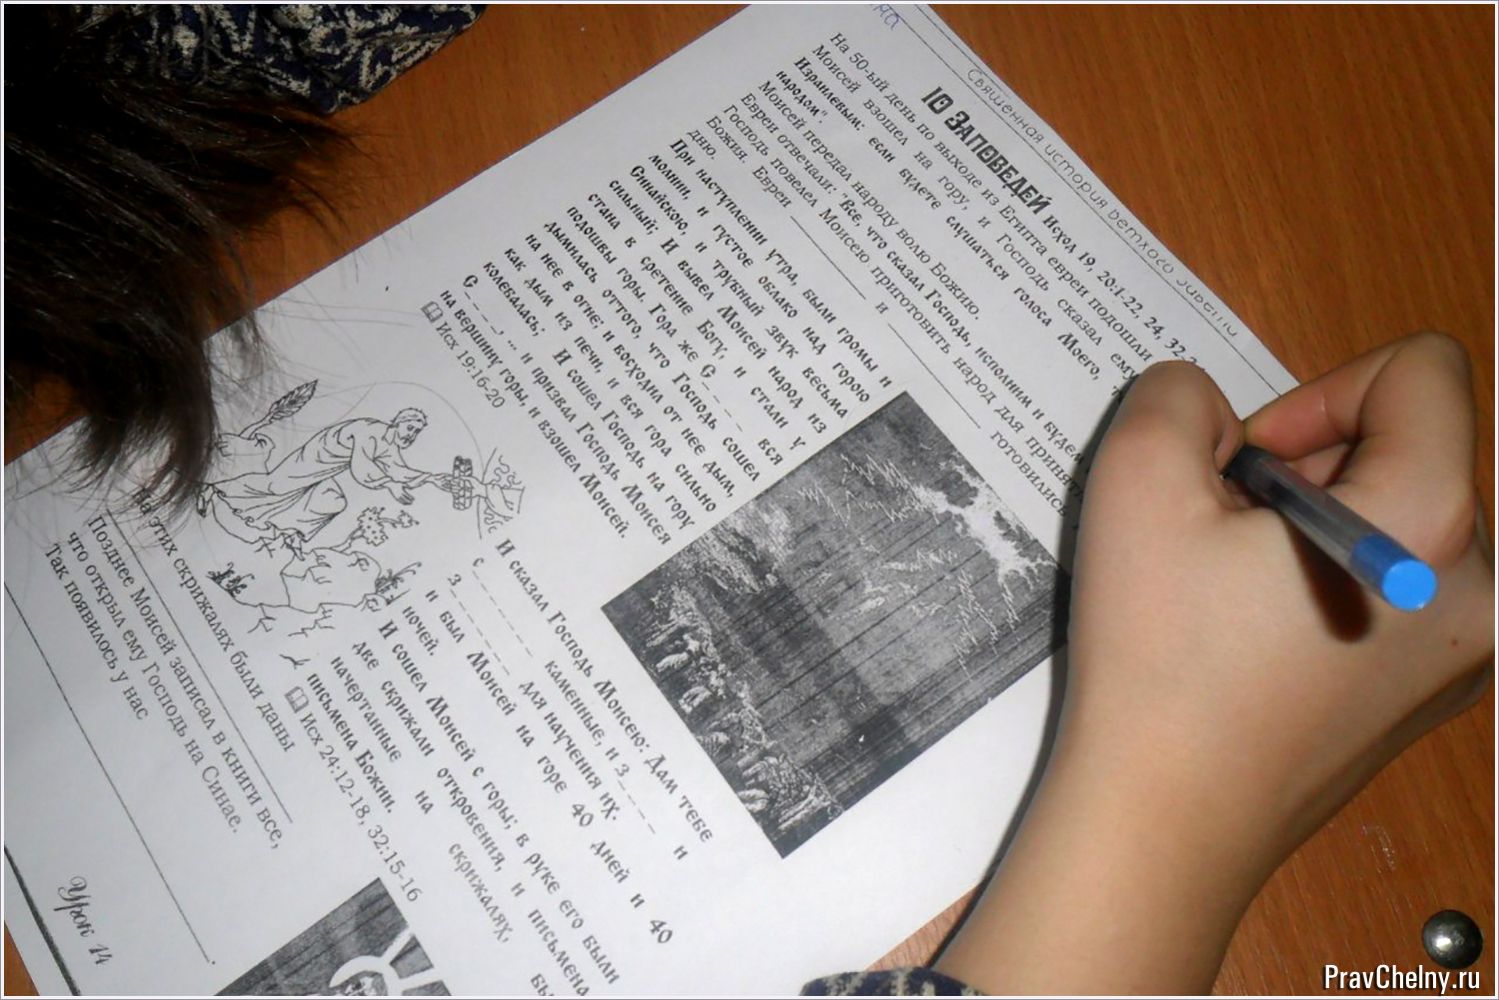 Священная история Ветхого Завета
10 ЗАПОВЕДЕЙ Исход 19, 20:1-22, 24, 32
На 50-ый день по выходе из Египта евреи подошли
Моисей взошел на гору, и Господь сказал ему
Израилевым: если будете слушаться голоса Моего,
народом".
Моисей передал народу волю Божию.
Евреи отвечали: "Все, что сказал Господь, исполним и будем
Господь повелел Моисею приготовить народ для принятия
Божия. Евреи ______ и ______ готовились
дню.
При наступлении утра, были громы и
молнии, и густое облако над горою
Синайскою, и трубный звук весьма
сильный; И вывел Моисей народ из
стана в сретение Богу, и стали у
подошвы горы. Гора же С _ _ _ _ вся
дымилась оттого, что Господь сошел
на нее в огне; и восходил от нее дым,
как дым из печи, и вся гора сильно
колебалась; И сошел Господь на гору
С _ _ _ _, ... и призвал Господь Моисея
на вершину горы, и взошел Моисей.
Исх 19:16-20
И сказал Господь Моисею: Дам тебе
с _ _ _ _ _ _ _ каменные, и з _ _ _ _ _ и
з _ _ _ _ _ _ _ для научения их.
и был Моисей на горе 40 дней и 40
ночей.
И сошел Моисей с горы; в руке его были
две скрижали откровения, и письмена
начертанные на скрижалях,
письмена Божии.
Исх 24:12-18, 32:15-16
на этих скрижалях были даны
Позднее Моисей записал в книги все,
что открыл ему Господь на Синае.
Так появилось у нас
Урок 14
PravChelny.ru